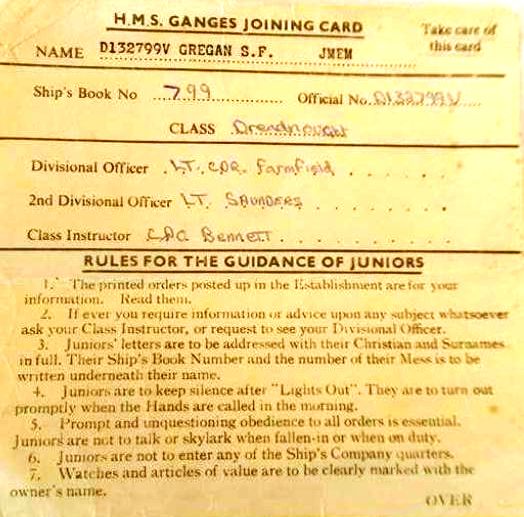 H.M.S. GANGES JOINING CARD
Take care of
this card
NAME D132799V GREGAN S.F. JMEM
Ship's Book No 799 Official No. D132799V
CLASS Dreadnought
Divisional Officer LT. CDR. Farnfield
2nd Divisional Officer LT SAUNDERS
Class Instructor CPO Bennett
RULES FOR THE GUIDANCE OF JUNIORS
1. The printed orders posted up in the Establishment are for your
information. Read them.
2. If ever you require information or advice upon any subject whatsoever
ask your Class Instructor, or request to see your Divisional Officer.
3. Juniors' letters are to be addressed with their Christian and Surnames
in full. Their Ship's Book Number and the number of their Mess is to be
written underneath their name.
4. Juniors are to keep silence after "Lights Out". They are to turn out
promptly when the Hands are called in the morning.
5. Prompt and unquestioning obedience to all orders is essential.
Juniors are not to talk or skylark when fallen-in or when on duty.
6. Juniors are not to enter any of the Ship's Company quarters.
7. Watches and articles of value are to be clearly marked with the
owner's name.
OVER